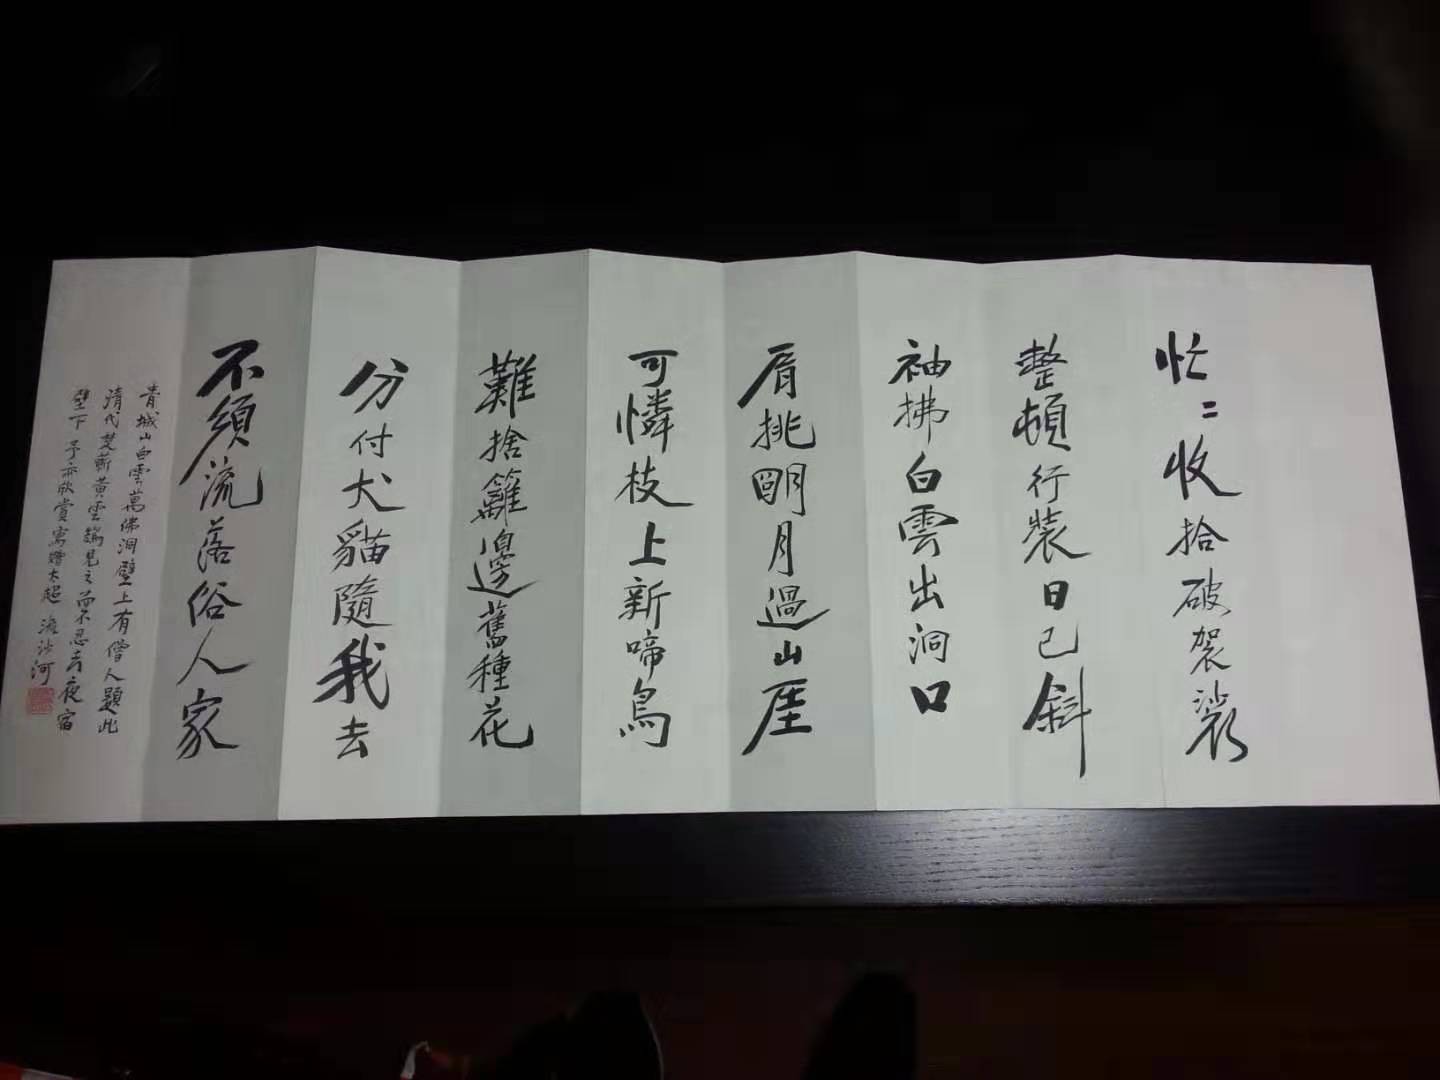 忙〻收拾破袈裟
整頓行裝日已斜
袖拂白雲出洞口
肩挑明月過山厓
可憐枝上新啼鳥
難捨籬邊舊種花
分付犬貓隨我去
不須流落俗人家
青城山白雲萬佛洞壁上有僧人題此
清代楚蘄黃雲鵠見之而不忍去夜宿
壁下 予亦欣賞寫贈大超 流沙河